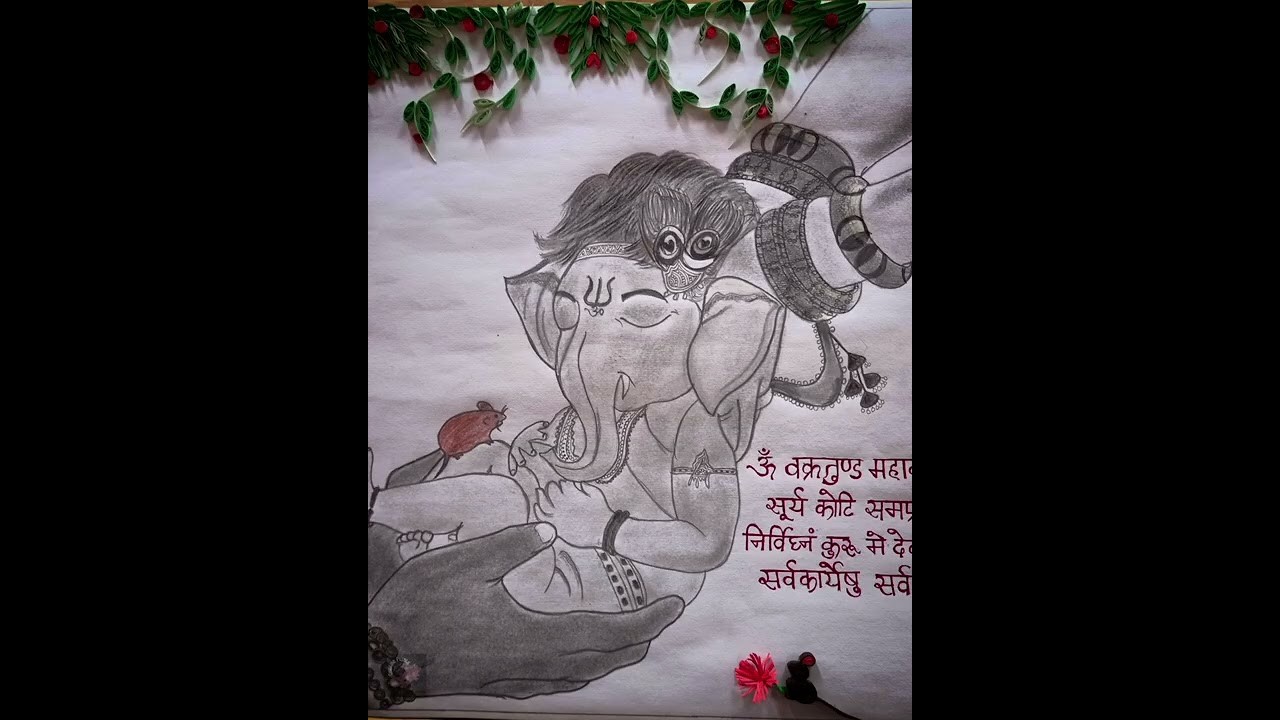 ॐ वक्रतुण्ड महा
सूर्य कोटि समप्र
निर्विघ्नं कुरू मे दे
सर्वकार्येषु सर्व